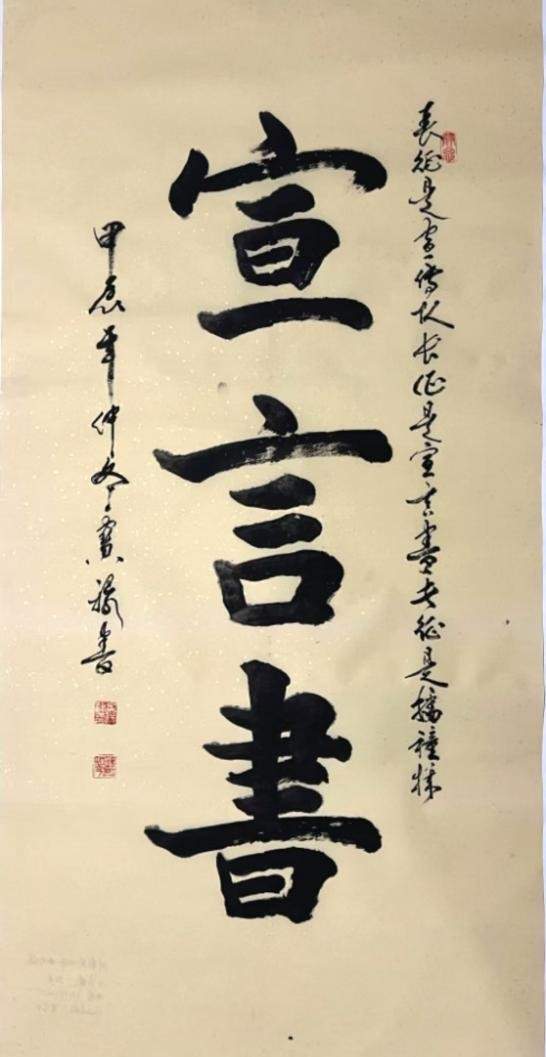 長征是宣傳队长征是宣言書长征是播種機
宣言書
甲辰年仲冬書